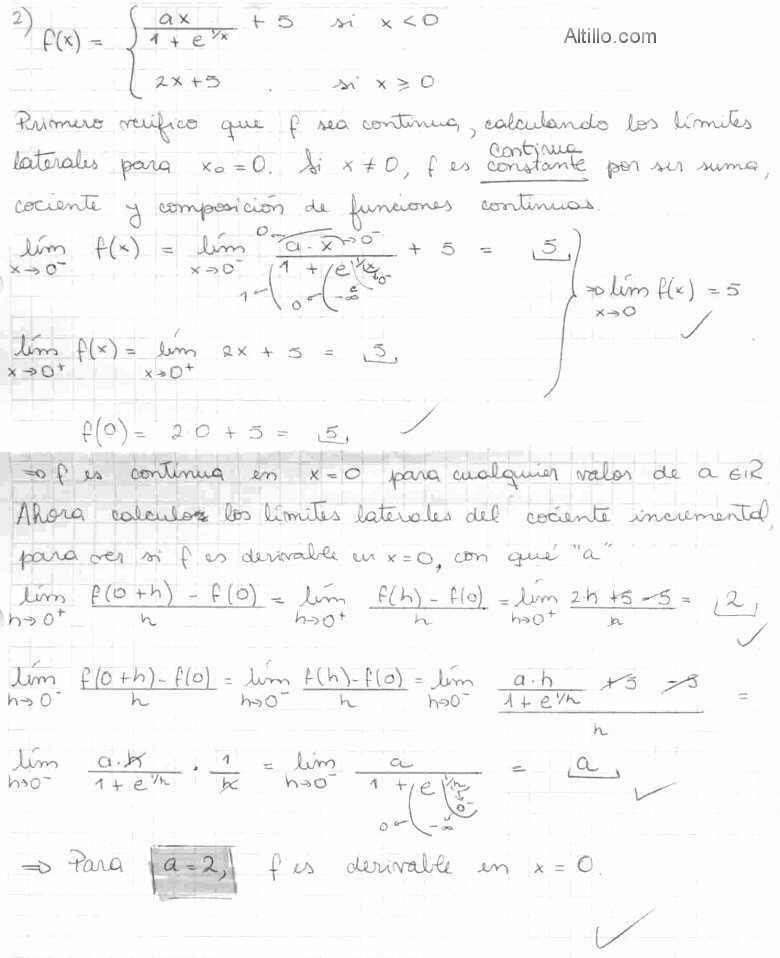 2) f(x) = { ax / (1 + e^(1/x)) + 5 si x < 0
Altillo.com
2x + 5 . si x ≥ 0
Primero verifico que f sea continua, calculando los límites
laterales para x₀ = 0. Si x ≠ 0, f es constante continua por ser suma,
cociente y composición de funciones continuas.
lím x→0⁻ f(x) = lím x→0⁻ a·x / (1 + e^(1/x)) + 5 = 5
0 →0⁻ 1 0 -∞ 0⁻
⇒ lím x→0 f(x) = 5 ✓
lím x→0⁺ f(x) = lím x→0⁺ 2x + 5 = 5
f(0) = 2·0 + 5 = 5 ✓
⇒ f es continua en x=0 para cualquier valor de a ∈ ℝ
Ahora calculo los límites laterales del cociente incremental,
para ver si f es derivable en x=0, con qué "a"
lím h→0⁺ (f(0+h) - f(0)) / h = lím h→0⁺ (f(h) - f(0)) / h = lím h→0⁺ (2h + 5 - 5) / h = 2 ✓
lím h→0⁻ (f(0+h) - f(0)) / h = lím h→0⁻ (f(h) - f(0)) / h = lím h→0⁻ (a·h / (1 + e^(1/h)) + 5 - 5) / h =
lím h→0⁻ a·h / (1 + e^(1/h)) · 1/h = lím h→0⁻ a / (1 + e^(1/h)) = a ✓
0 -∞ 0⁻
⇒ Para a = 2, f es derivable en x = 0.
✓